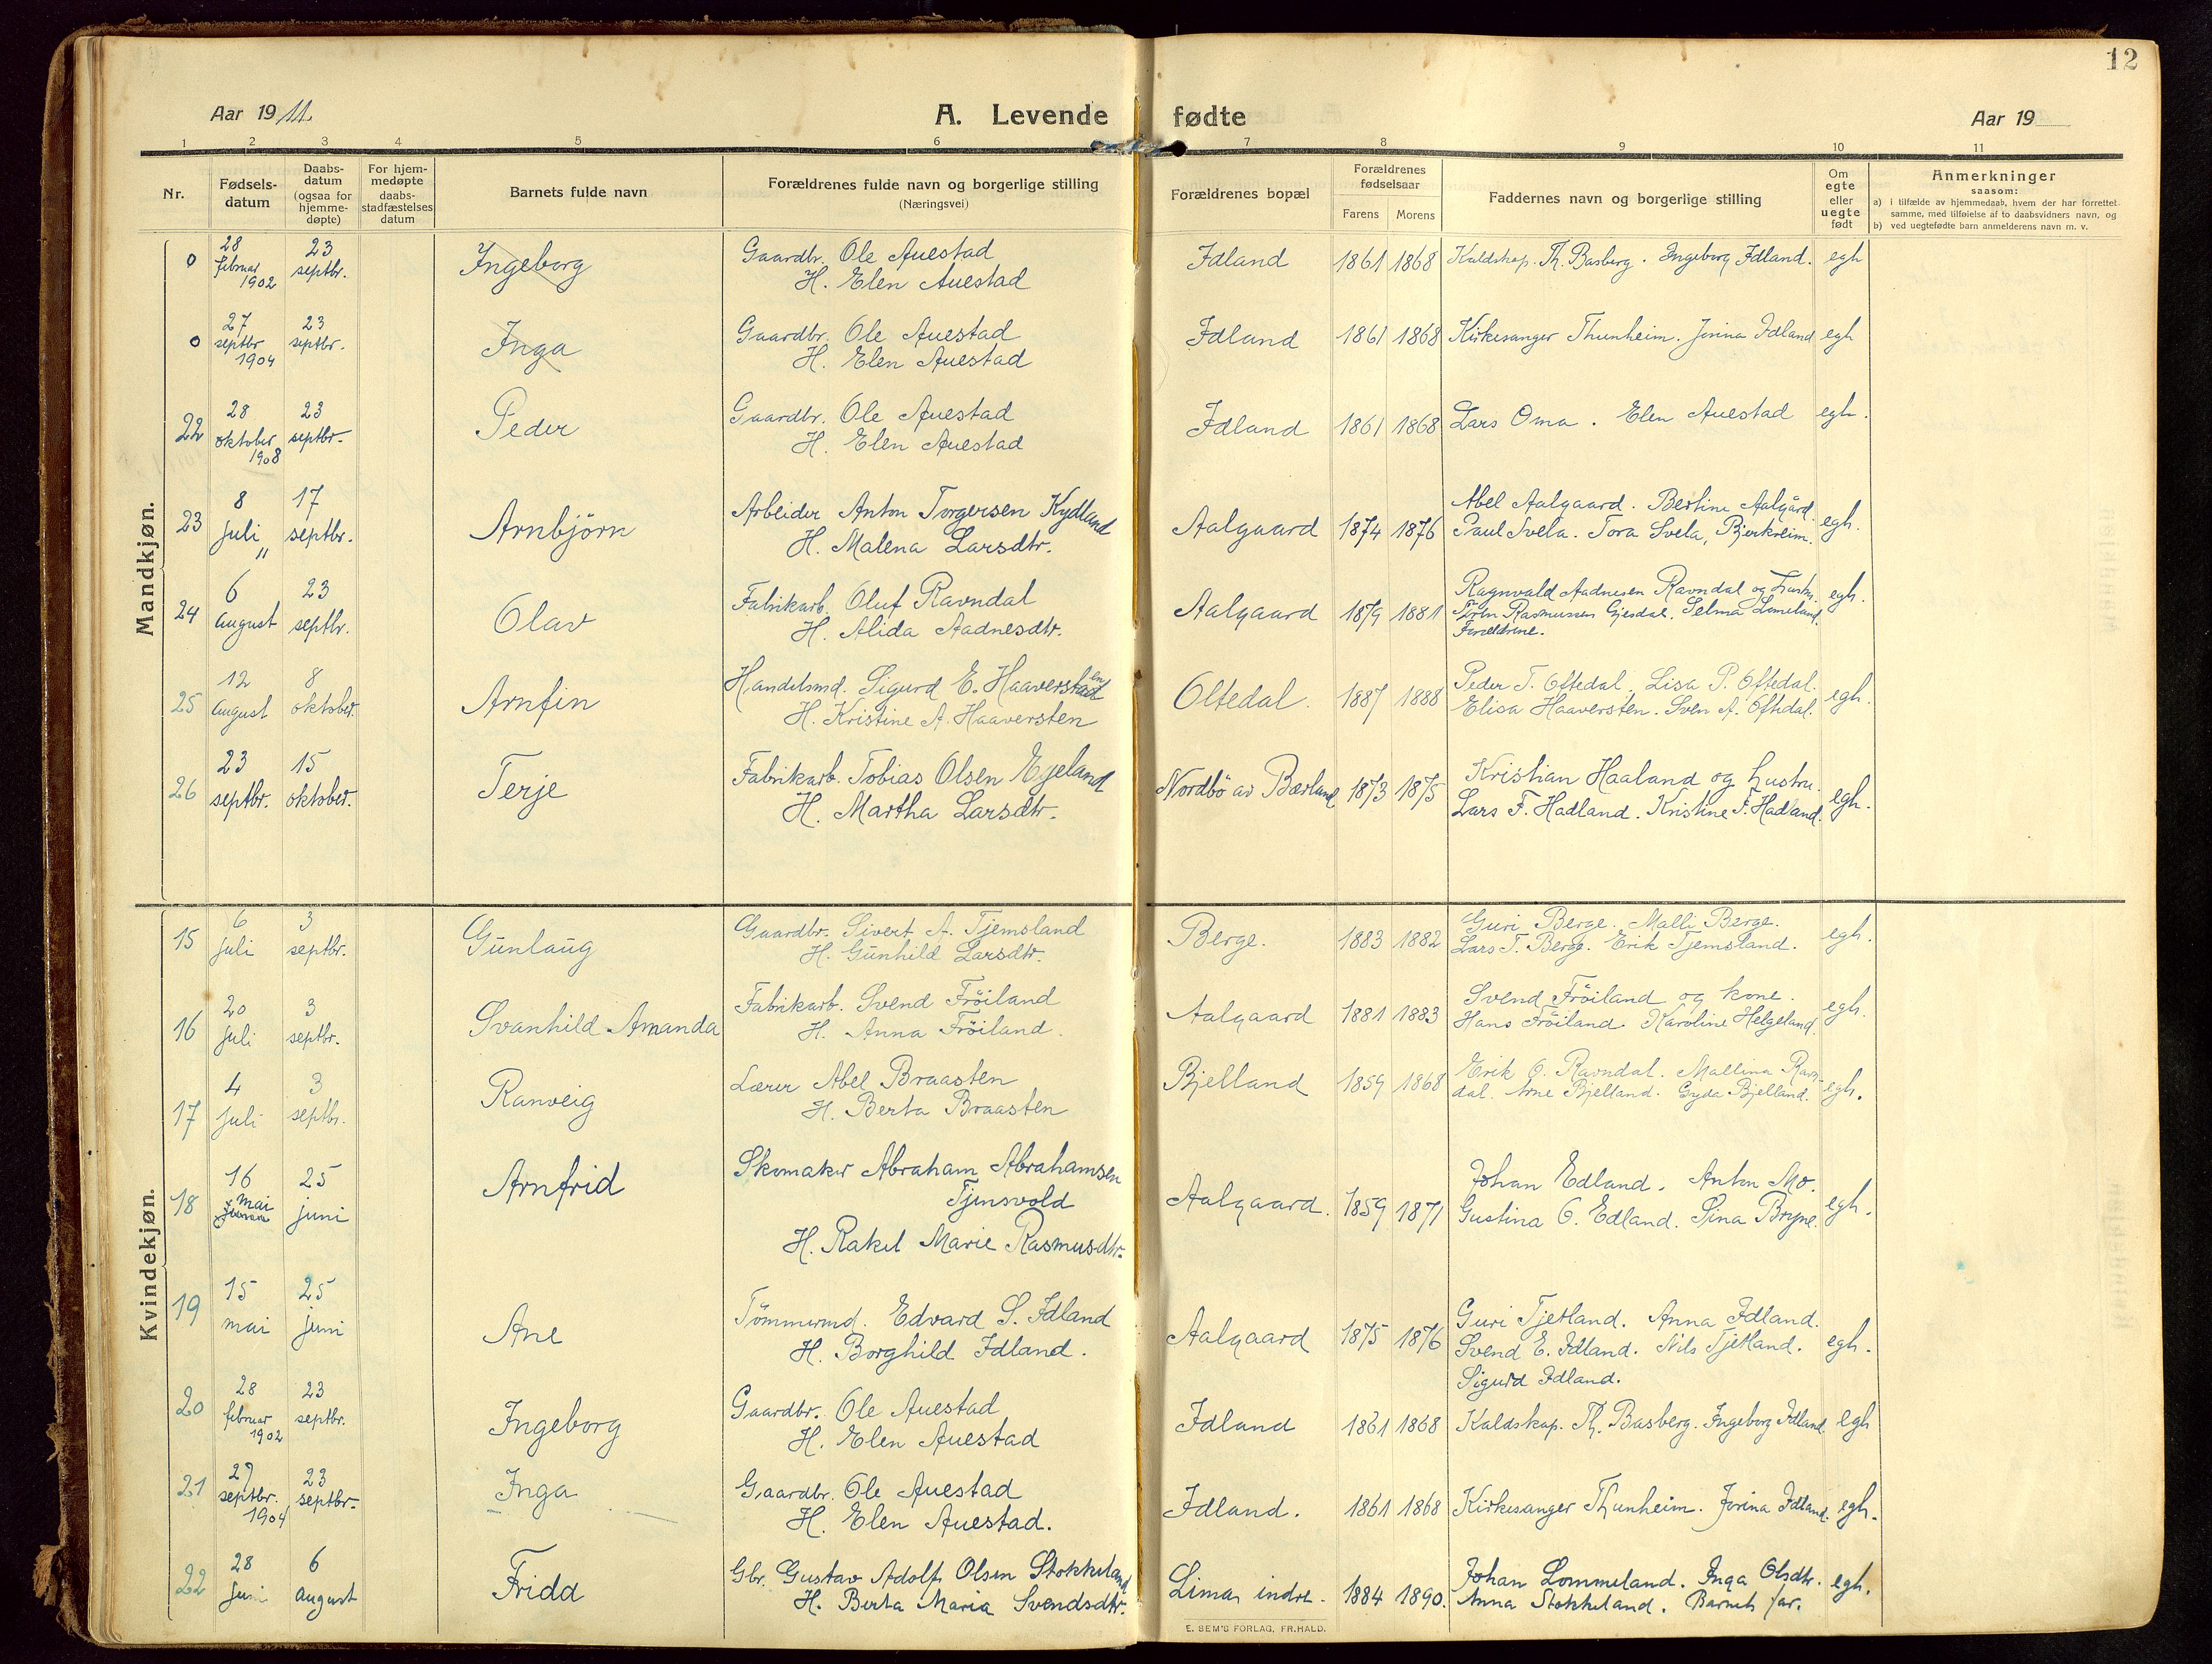 12
Aar 1911.
A. Levende
fødte
Aar 19
1 2 3 4 5 6 7 8 9 10 11
Nr.
Fødsels-
datum
Daabs-
datum
(ogsaa for
hjemme-
døpte)
For hjem-
medøpte
daabs-
stadfæstelses
datum
Barnets fulde navn
Forældrenes fulde navn og borgerlige stilling
(Næringsvei)
Forældrenes bopæl
Forældrenes
fødselsaar
Farens Morens
Faddernes navn og borgerlige stilling
Om
egte
eller
uegte
født
Anmerkninger
saasom:
a) i tilfælde av hjemmedaab, hvem der har forrettet
samme, med tilføielse af to daabsvidners navn, og
b) ved uegtefødte barn anmelderens navn m. v.
Mandkjøn.
0
28
februar
1902
23
septbr.
Ingeborg
Gaardbr. Ole Auestad
H. Elen Auestad
Idland
1861 1868
Kaldskap. Th. Basberg. Ingeborg Idland.
egh
0
27
septbr
1904
23
septbr.
Inga
Gaardbr. Ole Auestad
H. Elen Auestad
Idland
1861 1868
Kirkesanger Thunheim. Jorina Idland
egh
22
28
oktober
1908
23
septbr.
Peder
Gaardbr. Ole Auestad
H. Elen Auestad
Idland
1861 1868
Lars Oma. Elen Auestad
egh.
23
8
juli
"
17
septbr.
Arnbjörn
Arbeider Anton Torgersen Kydland
H. Malena Larsdtr.
Aalgaard
1874 1876
Abel Aalgaard. Bertine Aalgård.
Paul Svela. Tora Svela, Bjerkreim.
egh.
24
6
august
23
septbr.
Olav
Fabrikarb. Oluf Ravndal
H. Alida Aadnesdtr.
Aalgaard
1879 1881
Ragnvald Aadnesen Ravndal og hustru.
Rasmussen Gjesdal. Selma Limeland.
Forældrene.
egh.
25
12
august
8
oktober.
Arnfin
Handelsmd. Sigurd E. Haaversten
H. Kristine A. Haaversten
Oltedal.
1887 1888
Peder T. Oftedal, Lisa P. Oftedal.
Elisa Haaversten. Sven A. Oftedal.
egh.
26
23
septbr.
15
oktober.
Terje
Fabrikarb. Tobias Olsen Egeland
H. Martha Larsdtr.
Nordbö av Bærland
1873 1875
Kristian Haaland og hustru.
Lars F. Hadland. Kristine F. Hadland.
egh.
Kvindekjøn.
15
6
juli
3
septbr.
Gunlaug
Gaardbr. Sivert A. Tjemsland
H. Gunhild Larsdtr.
Berge.
1883 1882
Guri Berge. Malli Berge.
Lars T. Berge. Erik Tjemsland.
egh.
16
20
juli
3
septbr.
Svanhild Amanda
Fabrikarb. Svend Fröiland
H. Anna Fröiland.
Aalgaard
1881 1883
Svend Fröiland og kone.
Hans Fröiland. Karoline Helgeland.
egh.
17
4
juli
3
septbr.
Ranveig
Lærer Abel Braasten
H. Berta Braasten
Bjelland
1859 1868
Erik O. Ravndal. Mallina Ravn-
dal. Arne Bjelland. Gyda Bjelland.
egh.
18
16
mai
25
juni
Arnfrid
Skomaker Abraham Abrahamsen
Tjensvold
H. Rakel Marie Rasmusdtr.
Aalgaard.
1859 1871
Johan Edland. Anton Mo.
Gustina O. Edland. Sina Bryne.
egh.
19
15
mai
25
juni
Ane
Tömmermd. Edvard S. Idland
H. Borghild Idland.
Aalgaard
1875 1876
Guri Tjetland. Anna Idland.
Svend E. Idland. Nils Tjetland.
Sigurd Idland.
egh.
20
28
februar
1902
23
septbr.
Ingeborg
Gaardbr. Ole Auestad
H. Elen Auestad
Idland
1861 1868
Kaldskap. Th. Basberg. Ingeborg Idland
egh
21
27
septbr.
1904
23
septbr.
Inga
Gaardbr. Ole Auestad
H. Elen Auestad.
Idland.
1861 1868
Kirkesanger Thunheim. Jorina Idland.
egh.
22
28
juni
6
august
Frida
Gbr. Gustav Adolf Olsen Stokkeland
H. Berta Maria Svendsdtr.
Lima indre.
1884 1890.
Johan Lommeland. Inga Olsdtr.
Anna Stokkeland. Barnets far.
egh.
E. SEM'S FORLAG, FR.HALD.